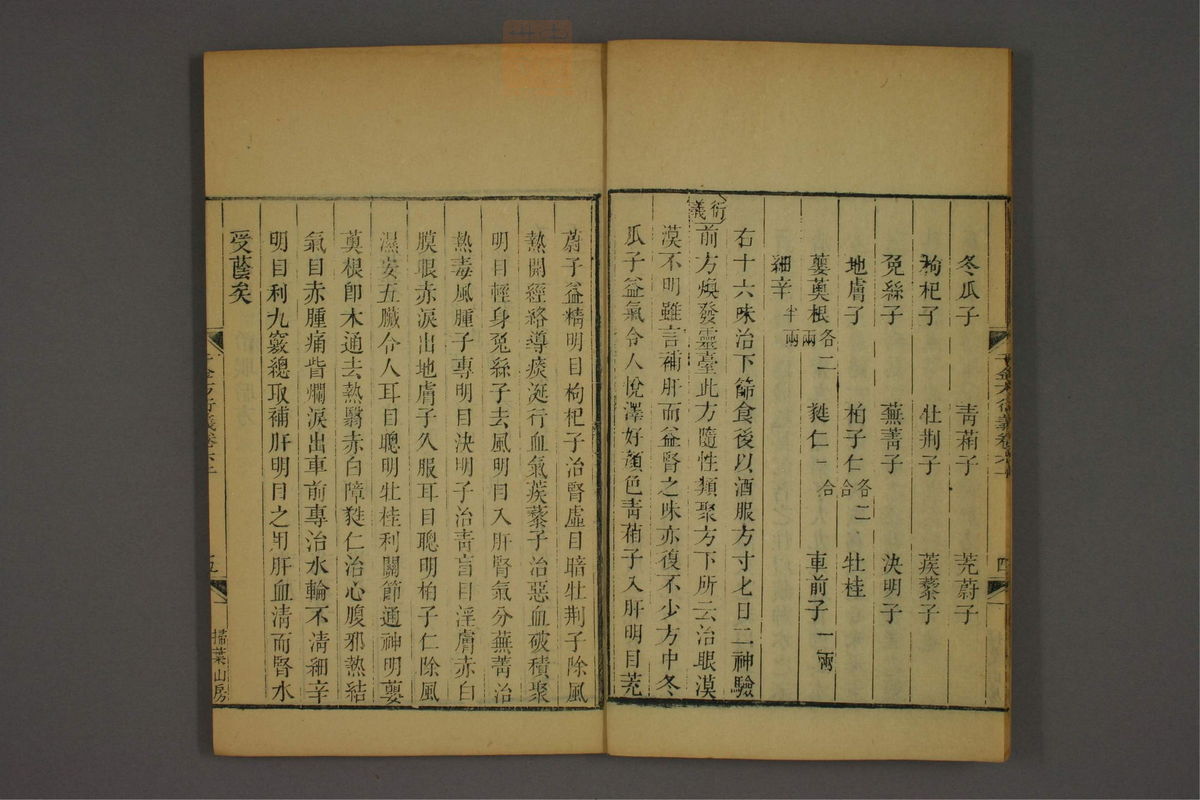 冬瓜子　青葙子　茺蔚子
枸杞子　牡荆子　蒺藜子
兔絲子　蕪菁子　決明子
地膚子　柏子仁各二合　牡桂
蘡薁根各二兩　蕤仁一合　車前子一兩
細辛半兩
右十六味治下篩食後以酒服方寸匕日二神驗
衍義
前方煥發靈臺此方隨性類聚方下所云治眼漠
漠不明雖言補肝而益腎之味亦復不少方中冬
瓜子益氣令人悅澤好顏色靑葙子入肝明目茺
蔚子益精明目枸杞子治腎虛目暗牡荆子除風
熱開經絡導痰涎行血氣蒺藜子治惡血破積聚
明目輕身兔絲子去風明目入肝腎氣分蕪菁治
熱毒風腫子專明目決明子治靑盲目淫膚赤白
膜眼赤淚出地膚子久服耳目聰明柏子仁除風
濕安五臟令人耳目聰明牡桂利關節通神明蘡
薁根卽木通去熱翳赤白障蕤仁治心腹邪熱結
氣目赤腫痛眥爛淚出車前專治水輪不淸細辛
明目利九竅總取補肝明目之用肝血淸而腎水
受蔭矣
千金方衍義卷六上
四
千金方衍義卷六上
五
掃葉山房